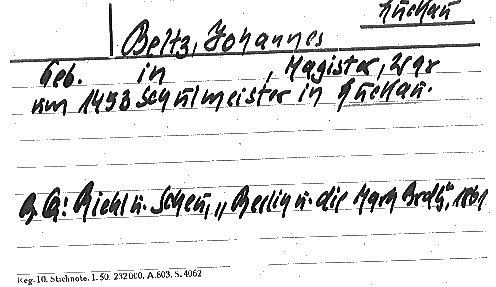 Luckau
Beltz, Johannes
Geb. in , Magister, war
um 1493 Schulmeister in Luckau.
B. Qu: Riehl u. Scheu, „Berlin u. die Mark Brdbg", 1861
Reg. 10. Stichnote. 1. 50. 232000. A. 803. S. 4062